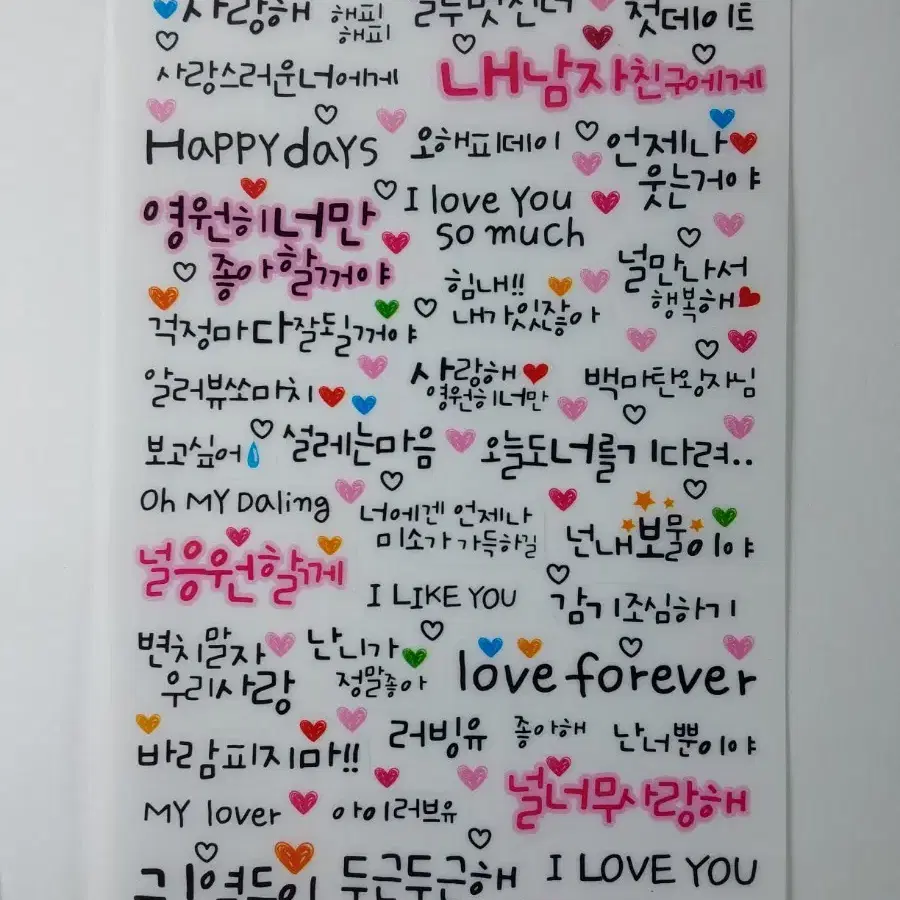 사랑해
해피
해피
첫데이트
사랑스러운너에게
내남자친구에게
HAPPY days
오해피데이
언제나
웃는거야
영원히너만
좋아할꺼야
I love You
so much
널만나서
행복해
힘내!!
내가있잖아
걱정마다잘될꺼야
사랑해
영원히너만
백마탄왕자님
알러뷰쏘마치
보고싶어
설레는마음
오늘도너를기다려..
Oh MY Daling
너에겐 언제나
미소가 가득하길
넌내보물이야
널응원할께
I LIKE YOU
감기조심하기
변치말자
우리사랑
난니가
정말좋아
love forever
바람피지마!!
러빙유
좋아해
난너뿐이야
MY lover
아이러브유
널너무사랑해
두근두근해
I LOVE YOU